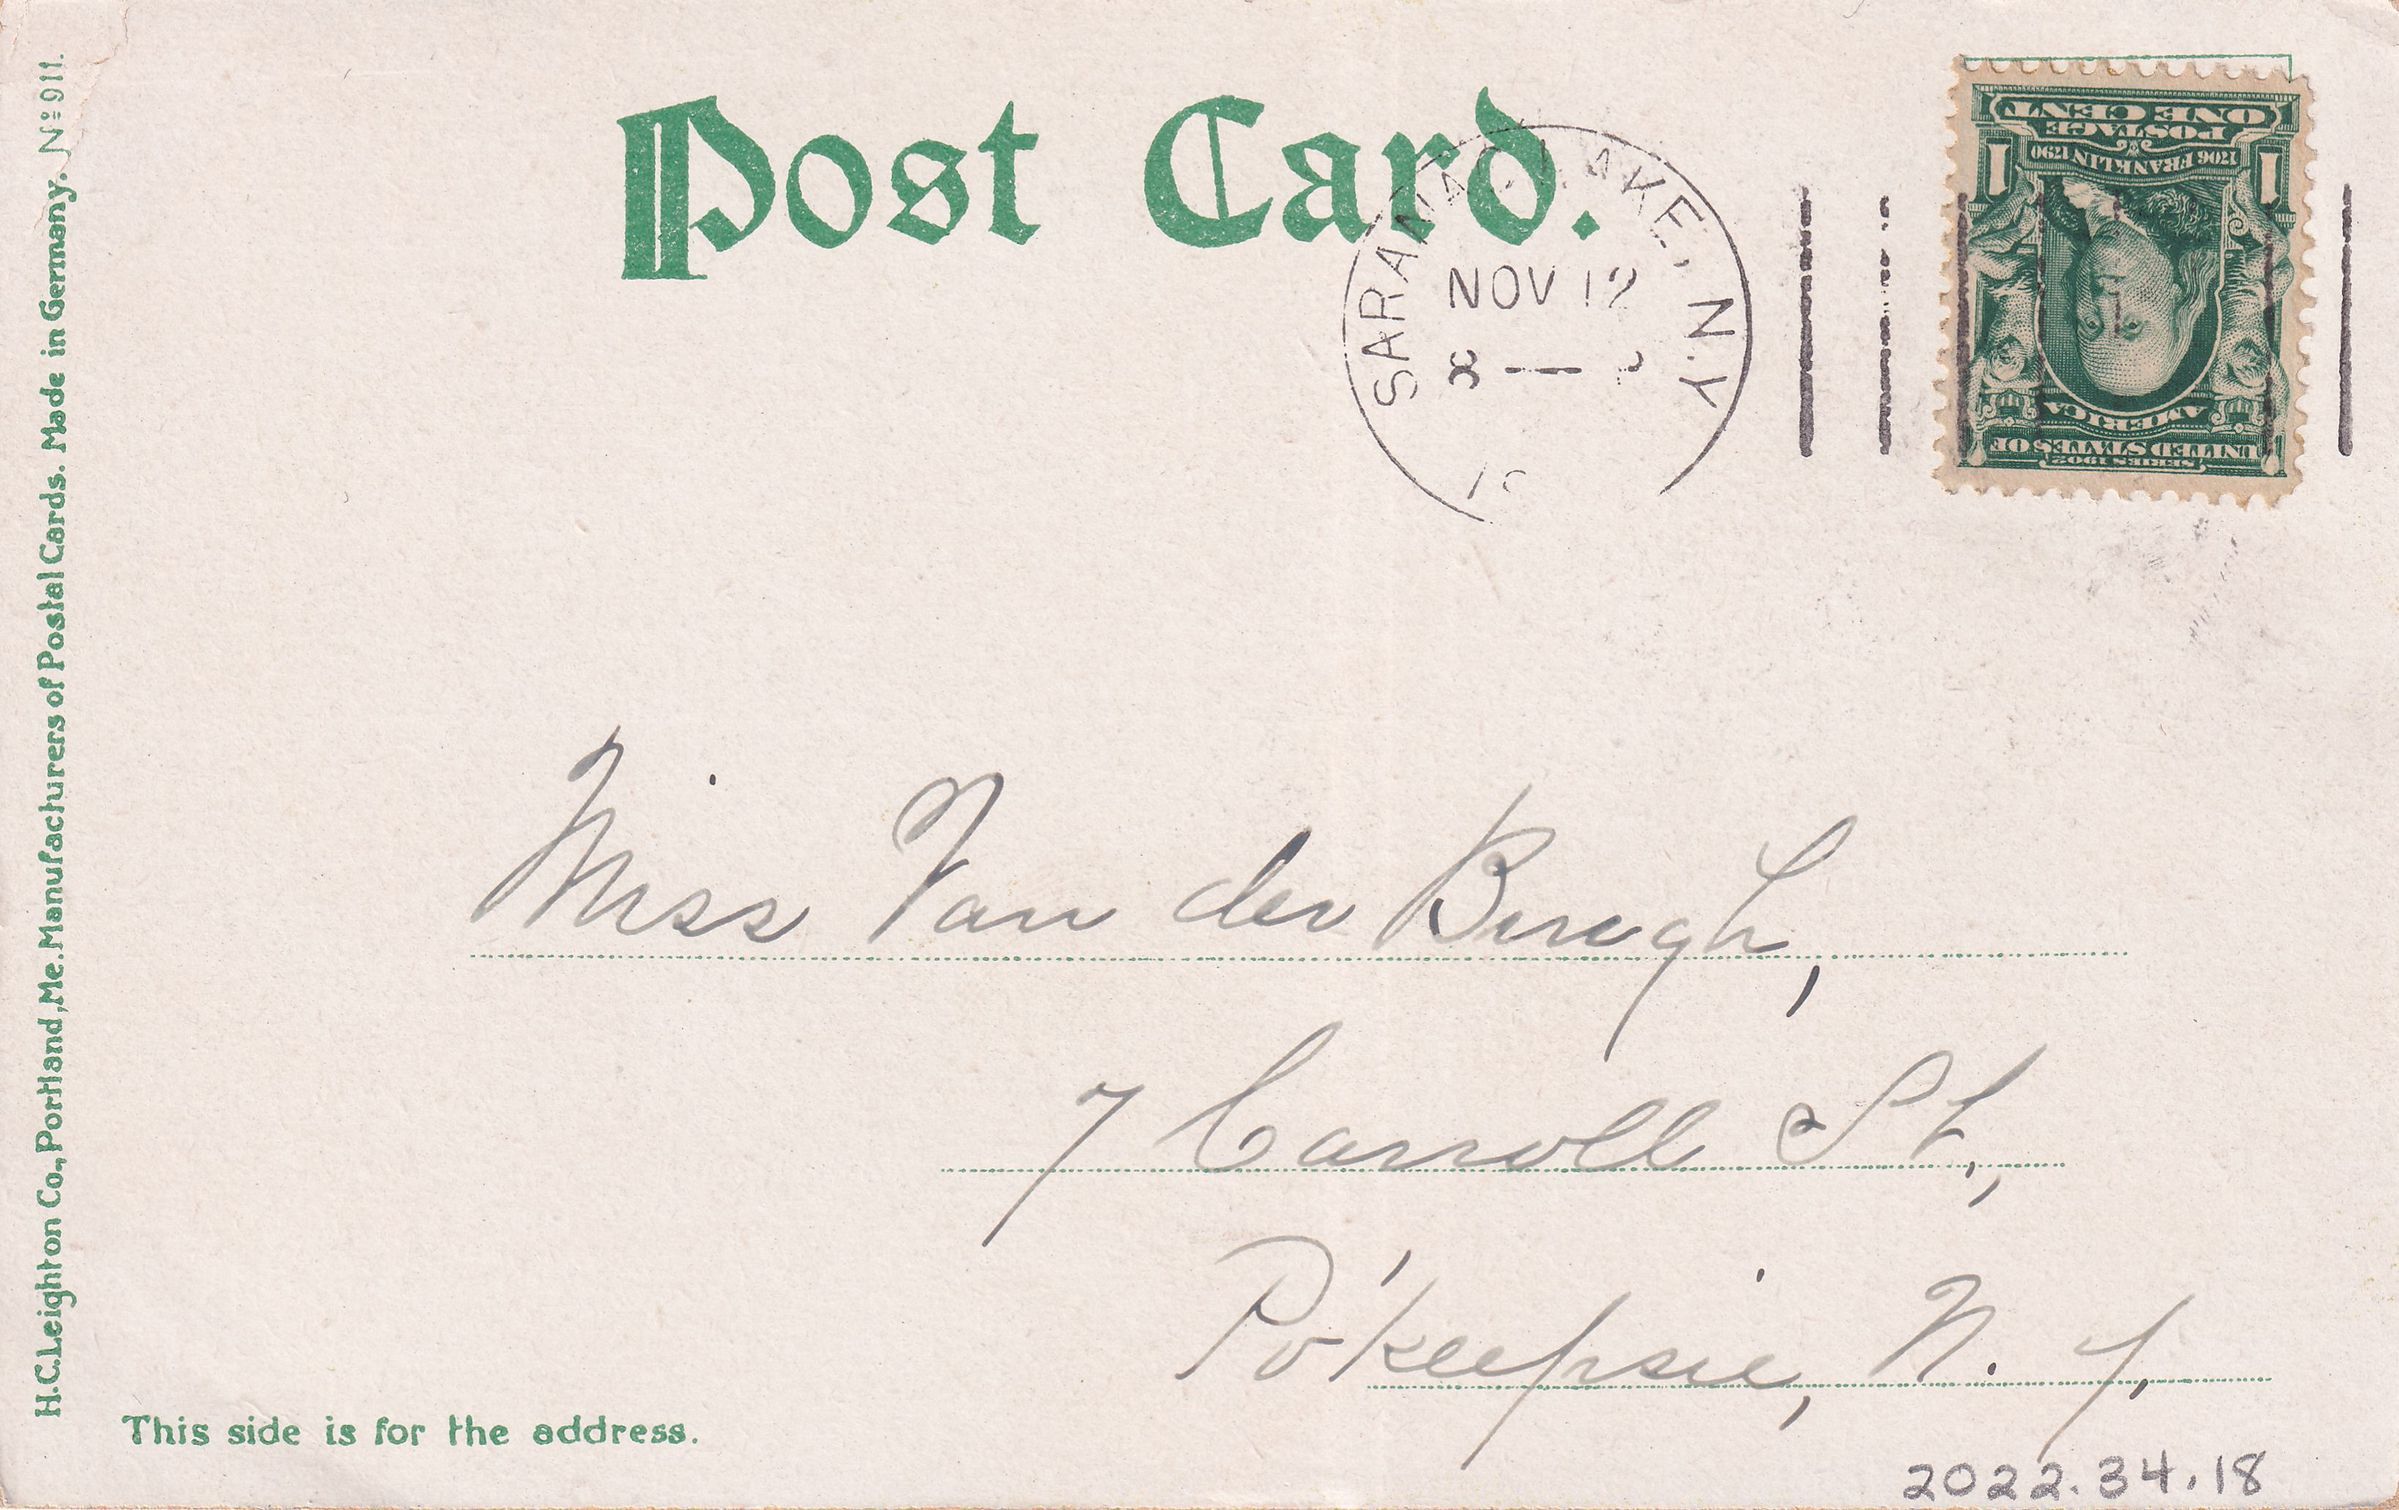 Post Card.
SARANAC LAKE, N.Y.
NOV 12
8 —
SERIES 1902
UNITED STATES OF
AMERICA
1706 FRANKLIN 1790
1 1
POSTAGE
ONE CENT
H.C. Leighton Co., Portland, Me. Manufacturers of Postal Cards. Made in Germany. No 911.
Miss Van der Burgh,
7 Carroll St.,
Po'keepsie, N. Y.
This side is for the address.
2022.34.18